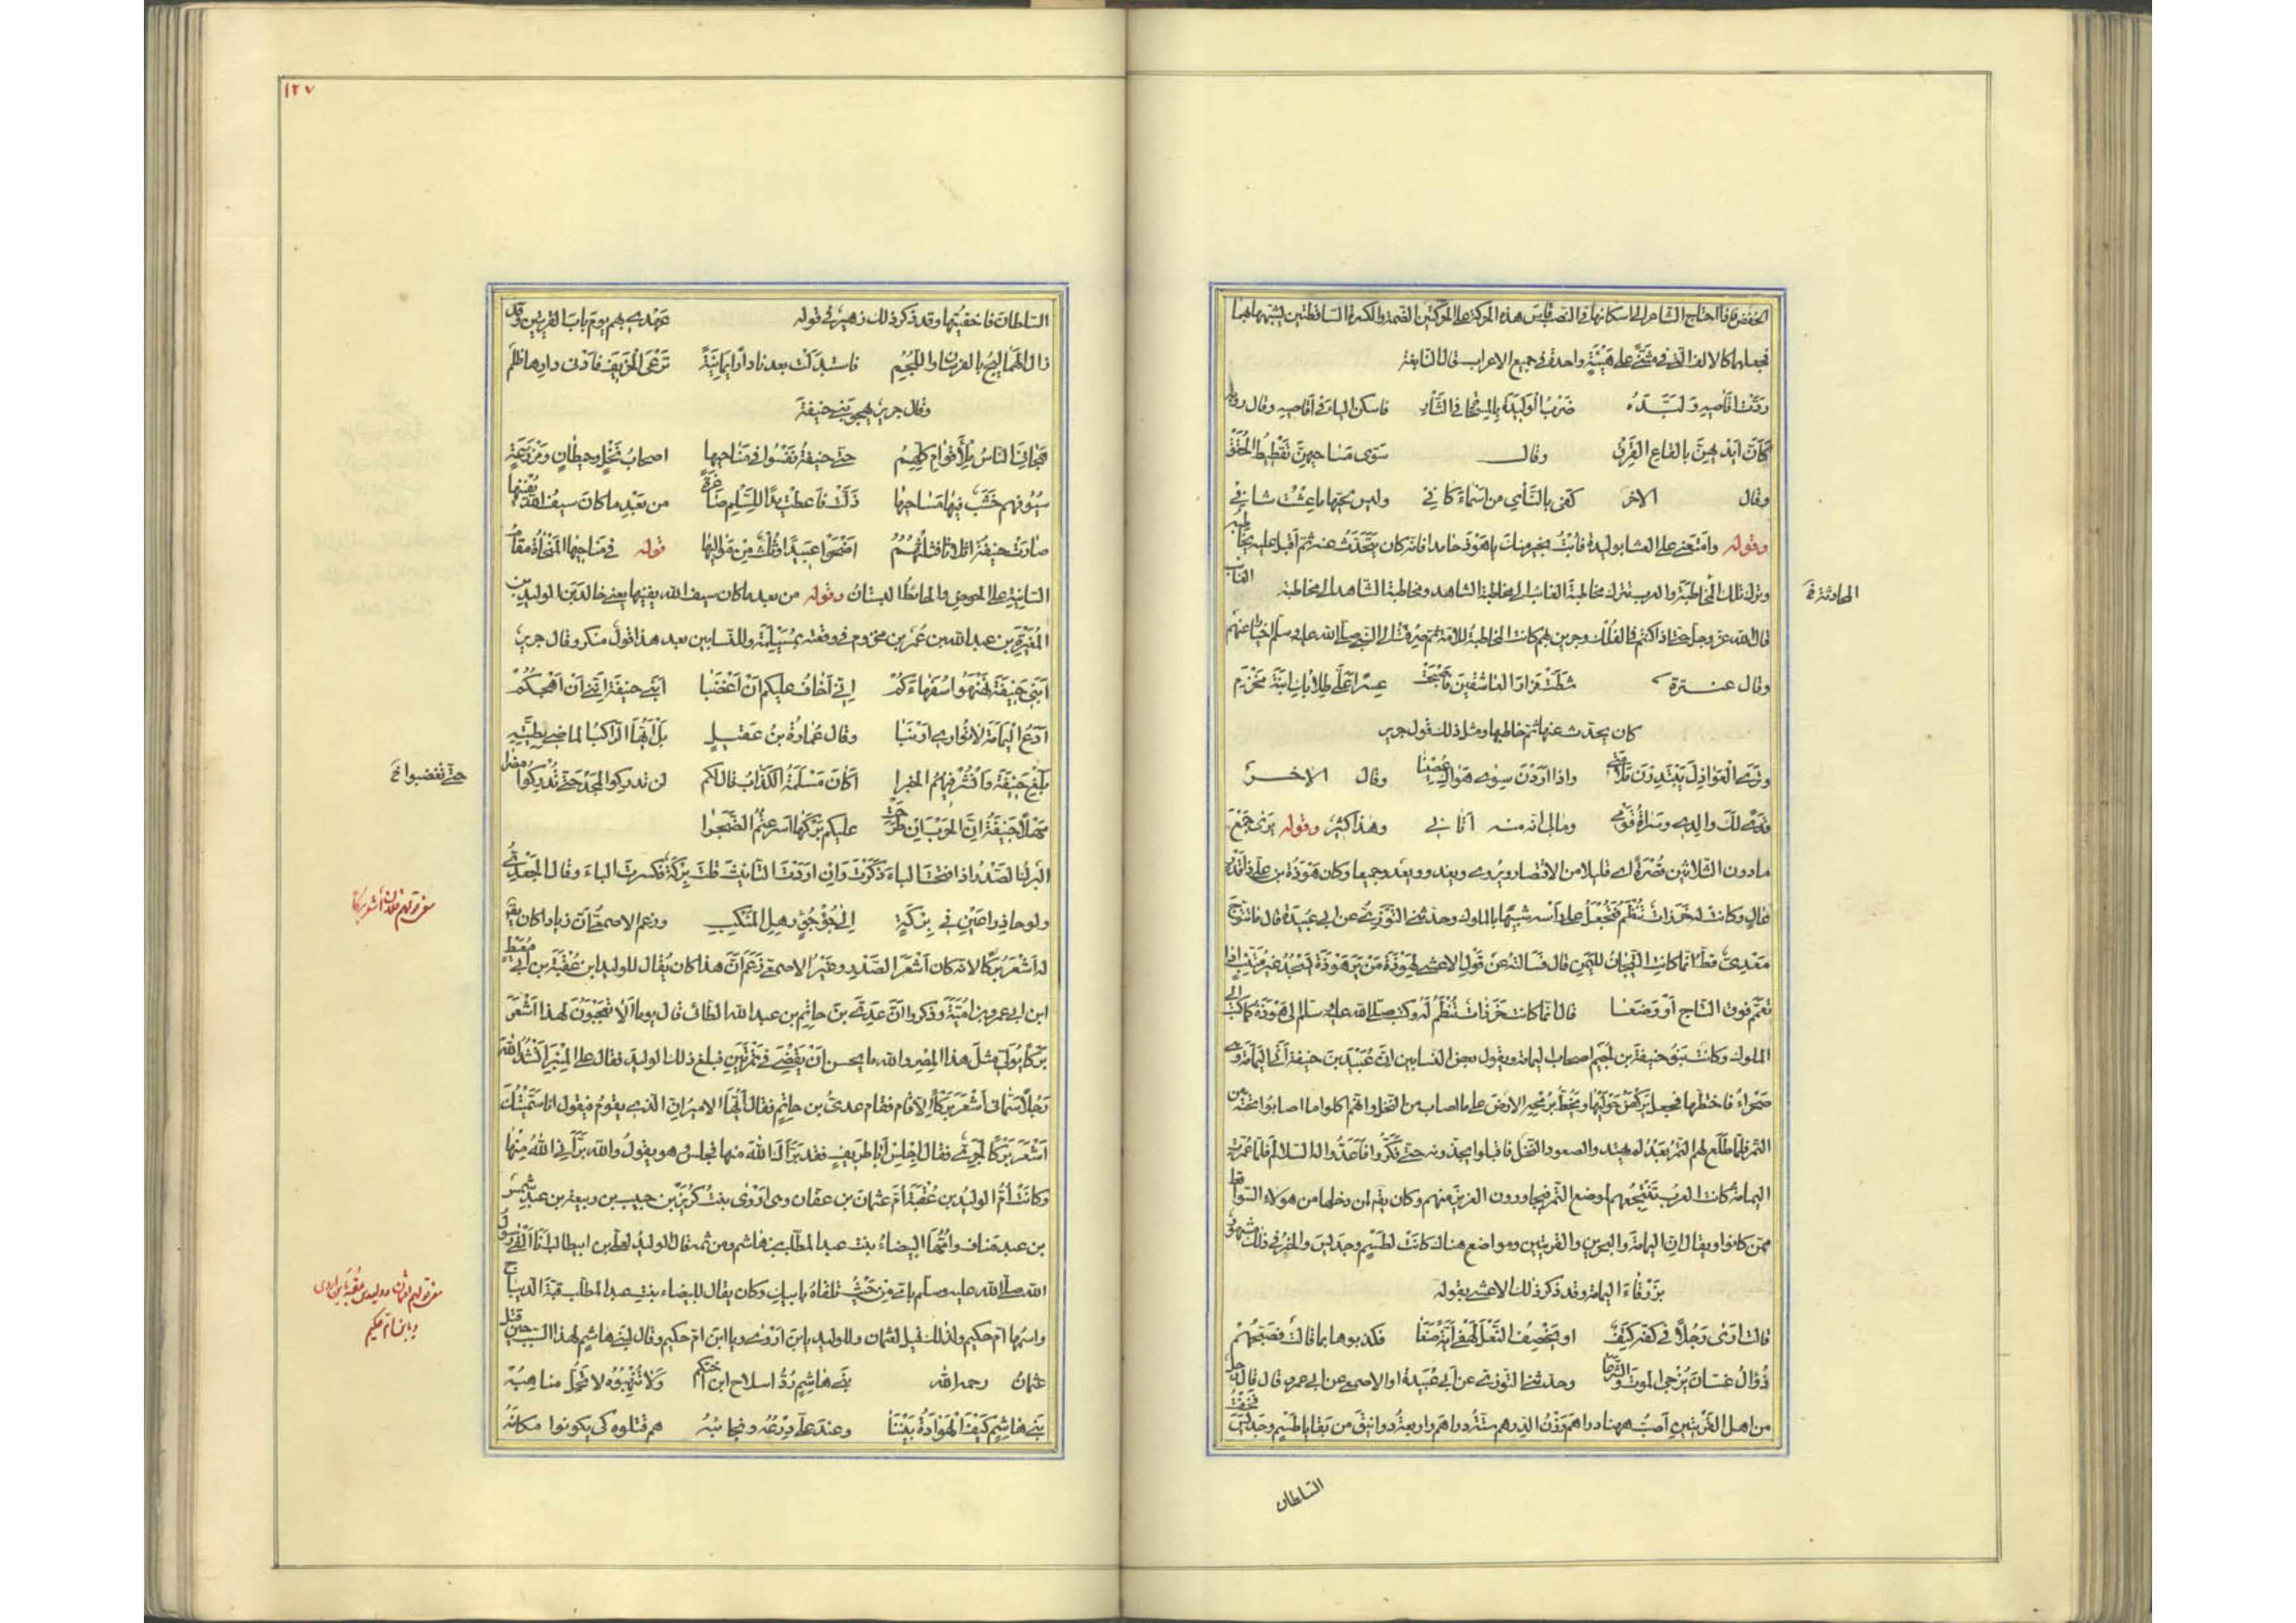 الخفض فاذا احتاج الشاعر الى اسكانها في النصب قاس هذه الحركة على الحركتين الضمة والكسرة الساقطتين لشبهها بهما
فجعلها كالالف التي في مثنى على هيئة واحدة في جميع الاعراب قال النابغة
ردت عليه اقاصيه ولبده ضرب الوليدة بالمسحاة في الثأد فاسكن الياء في اقاصيه وقال رؤبة
كأن ايديهن بالقاع القرق وقال سوى مساحيهن تقطيط الحقق
وقال الاخر كفى بالنأي من اسماء كافي وليس لحبها ما عشت شافي
وقوله وامتعني على العشا بوليدة فأبت بخير منك يا هوذ حامدا فانه كان يتحدث عنه ثم اقبل عليه يخاطبه
وترك تلك المخاطبة والعرب تترك مخاطبة الغائب الى مخاطبة الشاهد ومخاطبة الشاهد الى مخاطبة الغائب
المحادثة خ
قال الله عز وجل حتى اذا كنتم في الفلك وجرين بهم كانت المخاطبة للامة ثم صرفت الى النبي صلى الله عليه وسلم اخبارا عنهم
وقال عنترة شطت مزار العاشقين فاصبحت عسرا علي طلابك ابنة مخرم
كان يحدث عنها ثم خاطبها ومثل ذلك قول جرير
وترى العواذل يبتدرن ملامتي واذا اردن سوى هواك عصينا وقال الاخر
فدى لك والدي وسراة قومي ومالي انه منه اتاني وهذا كثير وقوله يرى جمع
ما دون الثلاثين قصرة اي قليلا من الاقتصار ويروى ويغدو ويعد وجميعا وكان هوذة بن علي ذا قدر
عال وكانت له خرزات تنظم فتجعل على رأسه تشبها بالملوك وحدثني التوزي عن ابي عبيدة قال ما تتوج
معدي قط انما كانت التيجان لليمن قال فسألته عن قول الاعشى لهوذة من ير هوذة يسجد غير متئب اذا
تعمم فوق التاج او وضعا قال انما كانت خرزات تنظم له وكتب صلى الله عليه وسلم الى هوذة كما كتب الى
الملوك وكانت بنو حنيفة بن لجيم اصحاب اليمامة ويقول بعض النسابين ان عبيد بن حنيفة اتى اليمامة وهي
صحراء فاختطها فجعل يركض حواليها ويخط برمحه الارض على ما اصاب من النخل وانهم كانوا ما اصابوا تحته من
التمر فلما طلع لهم التمر بعد لم يهتدوا لصعود النخل فاقبلوا يجذونه حتى فكروا فاعدوا له السلالم فلما عمرت
اليمامة كانت العرب تنتجعهم لموضع التمر فيجاورون العزيز منهم وكان يقيم ان دخلها من هؤلاء السواقط
ممن كانوا ويقال ان اليمامة والبحرين والقريتين ومواضع هناك كانت لطسم وجديس والخبر في ذلك مشهور
بزرقاء اليمامة وقد ذكر ذلك الاعشى بقوله
قالت ارى رجلا في كفه كتف او يخصف النعل لهفي اية صنعا فكذبوها بما قالت فصبحهم
ذو آل غسان يزجي الموت والشرعا وحدثني التوزي عن ابي عبيدة او الاصمعي عن ابي عمرو قال قال رجل
من اهل القريتين اصبت ههنا دراهم وزن الدرهم ستة دراهم واربعة دوانيق من بقايا طسم وجديس فخفت
السلطان
١٢٧
السلطان فاخفيتها وقد ذكر ذلك زهير في قوله عهدي بهم يوم باب القريتين وقد
زال الهماليج بالفرسان واللجم فاستبدلت بعدنا دارا يمانية ترعى الخريف فأدنى دارها ظلم
وقال جرير يهجو بني حنيفة
هجاني الناس مل اقوام كلهم حتى حنيفة تفسوا في مناحيها اصحاب نخل وحيطان ومزرعة
سيوفهم خشب فيها مساحيها ذلت فاعطت يدا للسلم صاغرة من بعد ما كان سيف الله يفنيها
صارت حنيفة اثلاثا فثلثهم اضحوا عبيدا وثلث من مواليها قوله في مناحيها المنحاة مقام
السانية على الحوض والحائط البستان وقوله من بعد ما كان سيف الله يفنيها يعني خالد بن الوليد بن
المغيرة بن عبد الله بن عمر بن مخزوم في وقعته بمسيلمة وللنسابين بعد هذا قول منكر وقال جرير
ابني حنيفة نهنهوا سفهاءكم اني اخاف عليكم ان اغضبا ابني حنيفة انني ان اهجكم
ادع اليمامة لا تواري ارنبا وقال عمارة بن عقيل بل ايها الراكب الماضي لطيته
بلغ حنيفة وانشر فيهم الخبرا اكان مسلمة الكذاب قال لكم لن تدركوا المجد حتى تدركوا مضرا
حتى تغضبوا خ
مهلا حنيفة ان الحرب ان طرحت عليكم بركها اسرعتم الضجرا
البرك الصدر اذا فتحت الباء ذكرت وان اردت التأنيث قلت بركة فكسرت الباء وقال الجعدي
ولوحا ذراعين في بركة الى جؤجؤ رهل المنكب وزعم الاصمعي ان زيادا كان يقال
له اشعر بركا لانه كان اشعر الصدر وغير الاصمعي زعم ان هذا كان يقال للوليد ابن عقبة بن ابي معيط
ابن ابي عمرو بن امية وذكروا ان عدي بن حاتم بن عبد الله الطائي قال يوما الا تعجبون لهذا اشعر
بركا يولى مثل هذا المصر والله ما يحسن ان يقضي في تمرتين فبلغ ذلك الوليد فقال على المنبر انشد الله
رجلا سماني اشعر بركا الا قام فقام عدي بن حاتم فقال ايها الامير ان الذي يقوم فيقول انا سميتك
اشعر بركا لجريء فقال اجلس ابا طريف فقد برأك الله منها فجلس وهو يقول والله ما برأني الله منها
وكانت ام الوليد بن عقبة ام عثمان بن عفان وهي اروى بنت كريز بن حبيب بن ربيعة بن عبد شمس
بن عبد مناف وامها البيضاء بنت عبد المطلب بن هاشم ومن ثم قال الوليد لعلي بن ابي طالب انا القى رسول
الله صلى الله عليه وسلم بامي من حيث تلقاه بابيك وكان يقال للبيضاء بنت عبد المطلب قبة الديباج
واسمها ام حكيم ولذلك قيل لعثمان وللوليد يا ابن اروى ويا ابن ام حكيم وقال لبني هاشم لهذا السبب حين قتل
عثمان رحمه الله بني هاشم ردوا سلاح ابن اختكم ولا تنهبوه لا تحل مناهبه
بني هاشم كيف الهوادة بيننا وعند علي درعه ونجائبه هم قتلوه كي يكونوا مكانه